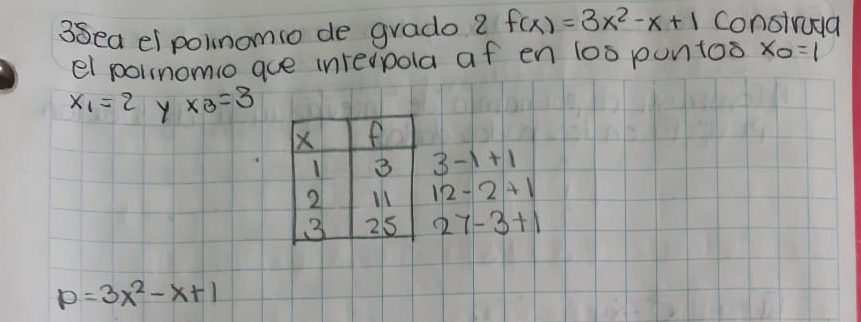 3Sea el polinomio de grado 2 f(x) = 3x² - x + 1 Construya
el polinomio que interpola a f en los puntos x₀=1
x₁=2 y x3=3
x f
1 3 3-1+1
2 11 12-2+1
3 25 27-3+1
p=3x²-x+1